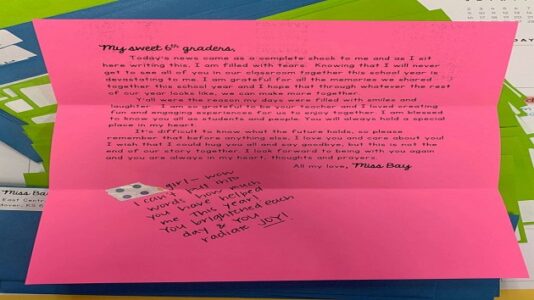 My sweet 6th graders,
Today's news came as a complete shock to me and as I sit
here writing this, I am filled with tears. Knowing that I will never
get to see all of you in our classroom together this school year is
devastating to me. I am grateful for all the memories we shared
together this school year and I hope that through whatever the rest
of our year looks like, we can make more together.
Y'all were the reason my days were filled with smiles and
laughter. I am so grateful to be your teacher and I loved creating
fun and engaging experiences for us to enjoy together. I am blessed
to know you all as students and people. You will always hold a special
place in my heart.
It's difficult to know what the future holds, so please
remember that before anything else, I love you and care about you!
I wish that I could hug you all and say goodbye, but this is not the
end of our story together. I look forward to being with you again
and you are always in my heart, thoughts and prayers.
All my love, Miss Bay
girl - wow
I can't put into
words how much
you have helped
me this year!
You brightened each
day & you
radiate JOY!
Miss Ba
East Centr